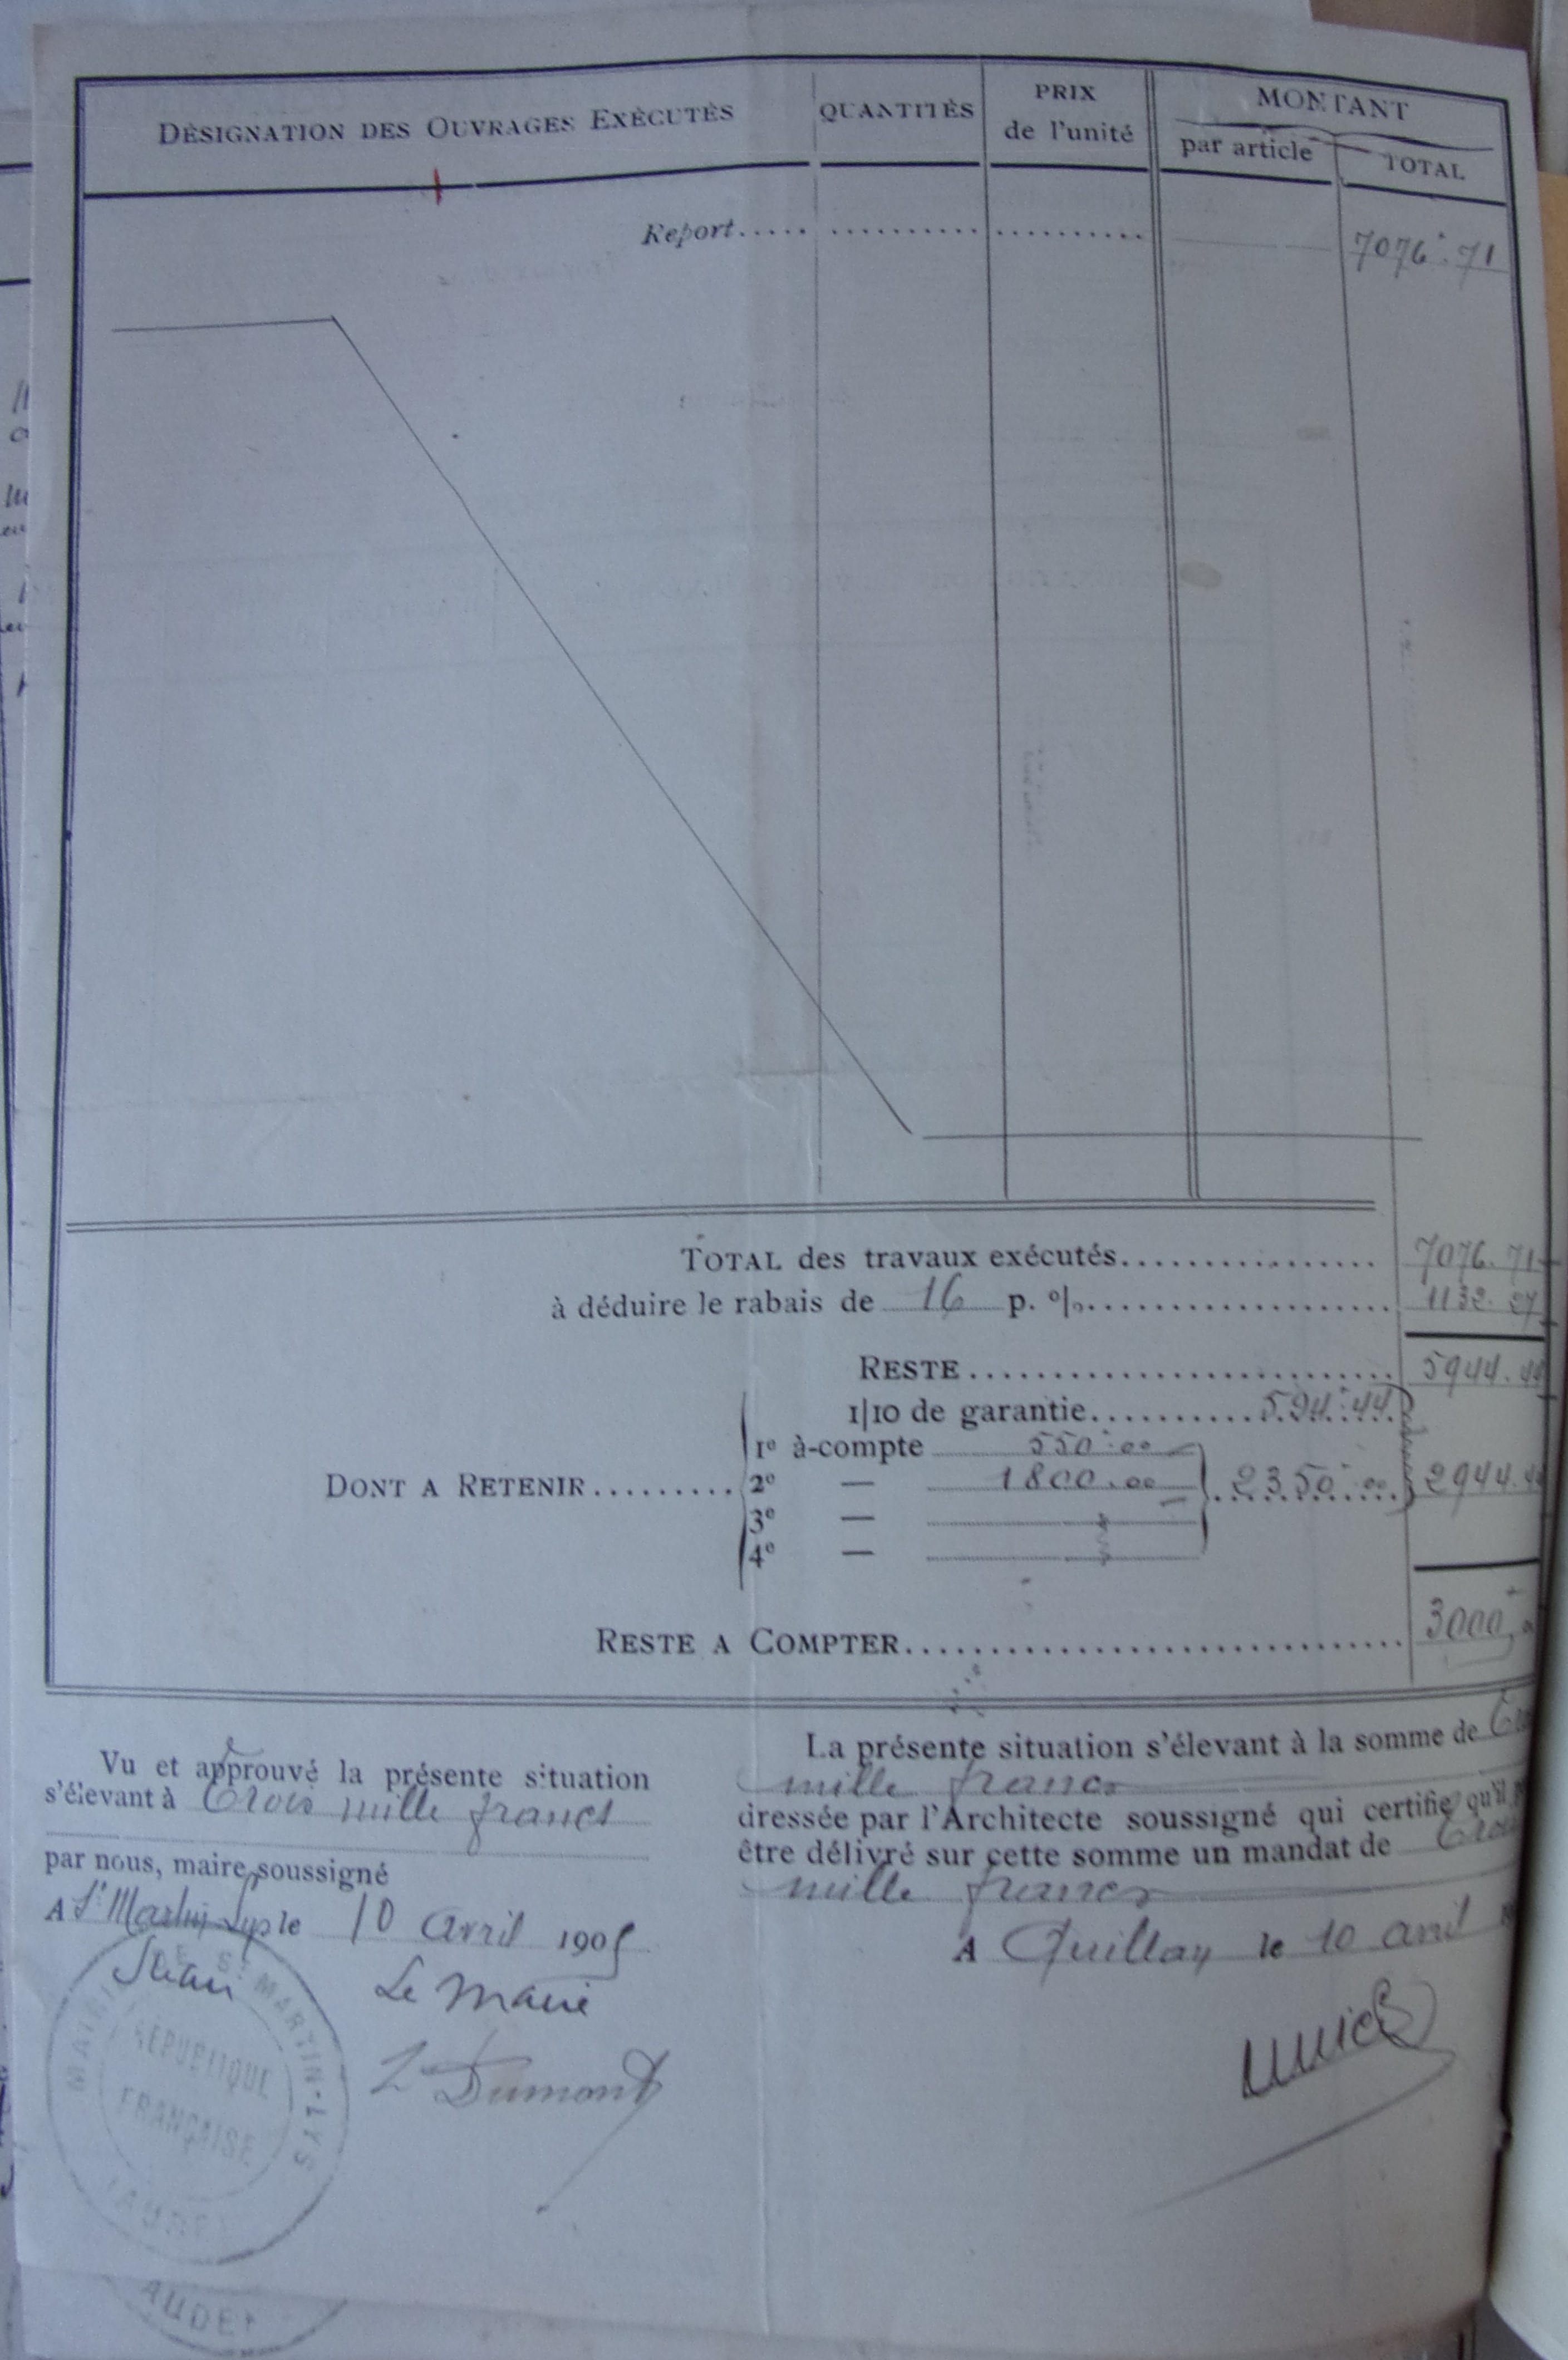 DÉSIGNATION DES OUVRAGES EXÉCUTÉS
QUANTITÉS
PRIX
de l'unité
MONTANT
par article
TOTAL
Report..... .......... ..........
7076.71
TOTAL des travaux exécutés................ 7076.71
à déduire le rabais de 16 p. %..................... 1132.27
RESTE.......................... 5944.44
1/10 de garantie.......... 594.44
1º à-compte 550.00
DONT A RETENIR......... 2º — 1800.00 2350.00 2944.44
3º —
4º —
RESTE A COMPTER............................... 3000
Vu et approuvé la présente situation
s'élevant à Trois mille francs
par nous, maire soussigné
A St Martin Lys le 10 avril 1905
Le Maire
L Dumont
MAIRIE DE St MARTIN-LYS
RÉPUBLIQUE
FRANÇAISE
(AUDE)
La présente situation s'élevant à la somme de
mille francs
dressée par l'Architecte soussigné qui certifie qu'il
être délivré sur cette somme un mandat de Trois
mille francs
A Quillan le 10 avril
AUDE